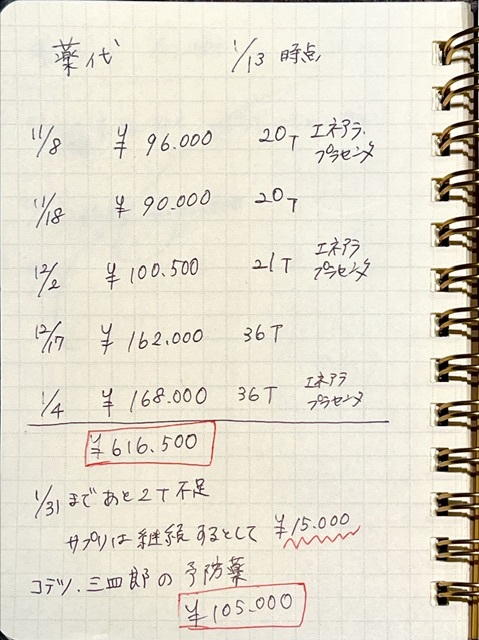 薬代 1/13 時点
11/8 ¥ 96.000 20T エネアラ.
プラセンタ
11/18 ¥ 90.000 20T
12/2 ¥ 100.500 21T エネアラ
プラセンタ
12/17 ¥ 162.000 36T
1/4 ¥ 168.000 36T エネアラ
プラセンタ
¥616.500
1/31 まであと2T不足
サプリは継続するとして ¥15.000
コテツ.三四郎の予防薬
¥105.000